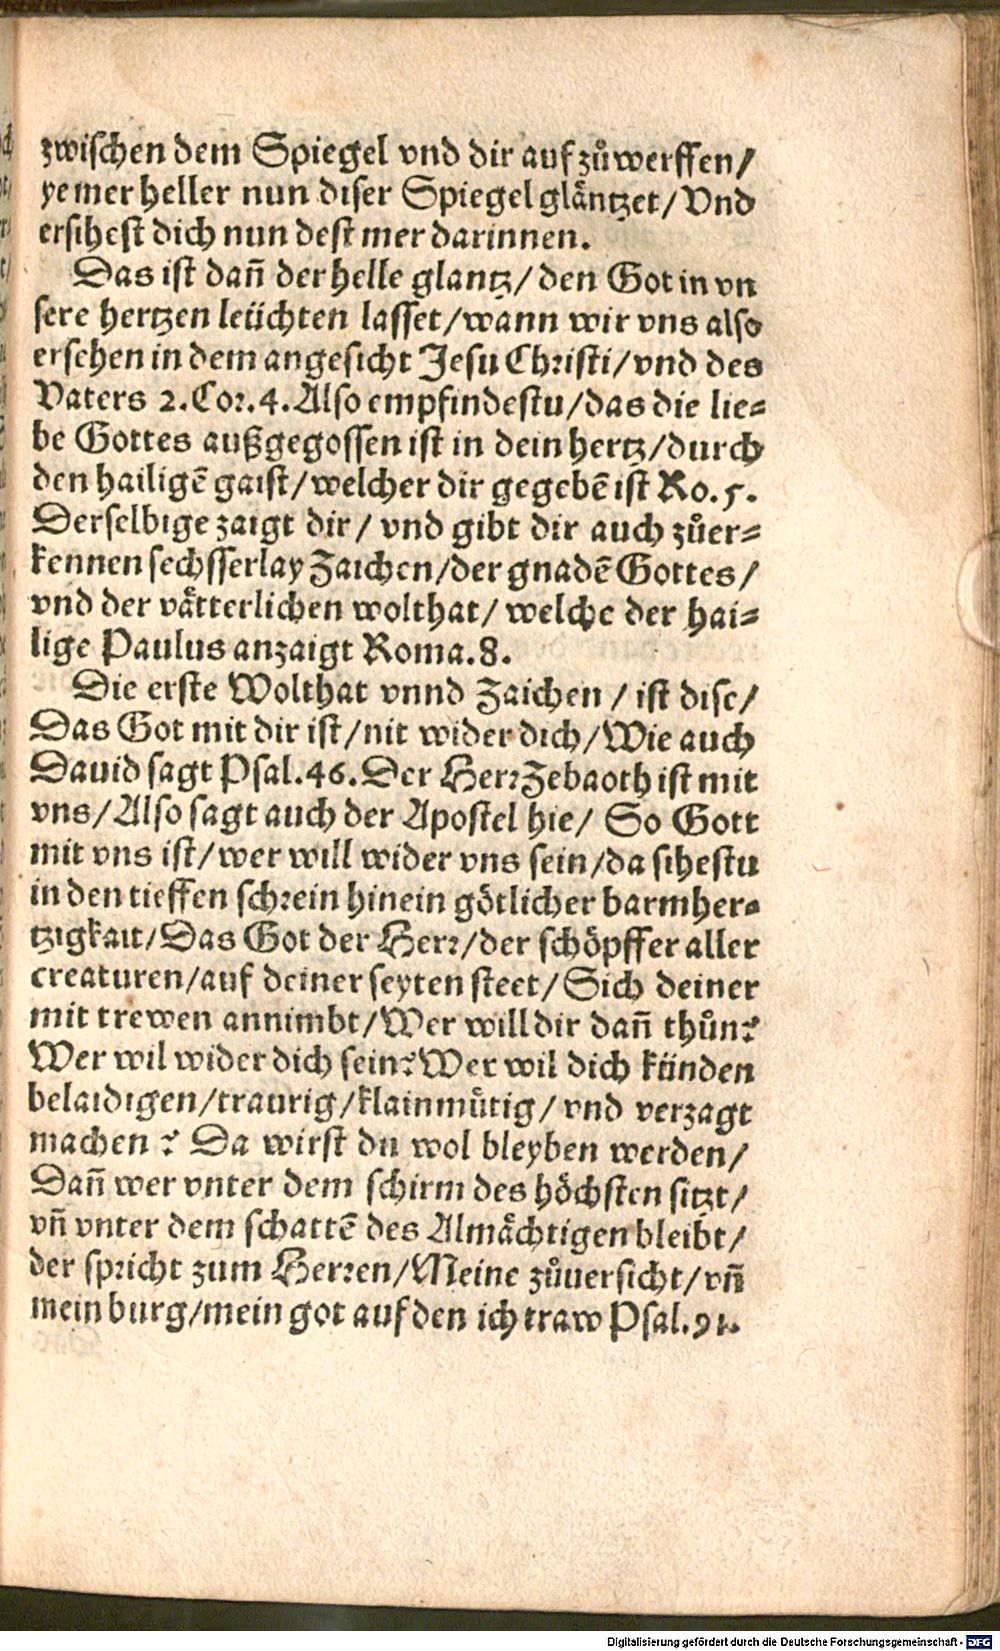 zwischen dem Spiegel vnd dir auf zůwerffen/
ye mer heller nun diser Spiegel glåntzet/ Vnd
ersihest dich nun dest mer darinnen.
Das ist dañ der helle glantz/ den Got in vn
sere hertzen leüchten lasset/ wann wir vns also
ersehen in dem angesicht Jesu Christi/ vnd des
Vaters 2. Cor. 4. Also empfindestu/ das die lie⸗
be Gottes außgegossen ist in dein hertz/ durch
den hailigē gaist/ welcher dir gegebē ist Ro. 5.
Derselbige zaigt dir/ vnd gibt dir auch zůer⸗
kennen sechsserlay Zaichen/ der gnadē Gottes/
vnd der våtterlichen wolthat/ welche der hai⸗
lige Paulus anzaigt Roma. 8.
Die erste Wolthat vnnd Zaichen/ ist dise/
Das Got mit dir ist/ nit wider dich/ Wie auch
Dauid sagt Psal. 46. Der Herr Zebaoth ist mit
vns/ Also sagt auch der Apostel hie/ So Gott
mit vns ist/ wer will wider vns sein/ da sihestu
in den tieffen schrein hinein götlicher barmher⸗
tzigkait/ Das Got der Herr/ der schöpffer aller
creaturen/ auf deiner seyten steet/ Sich deiner
mit trewen annimbt/ Wer will dir dañ thůn?
Wer wil wider dich sein? Wer wil dich künden
belaidigen/ traurig/ klainmůtig/ vnd verzagt
machen? Da wirst du wol bleyben werden/
Dañ wer vnter dem schirm des höchsten sitzt/
vñ vnter dem schattē des Almåchtigen bleibt/
der spricht zum Herren/ Meine zůuersicht/ vñ
mein burg/ mein got auf den ich traw Psal. 91.
Digitalisierung gefördert durch die Deutsche Forschungsgemeinschaft - DFG